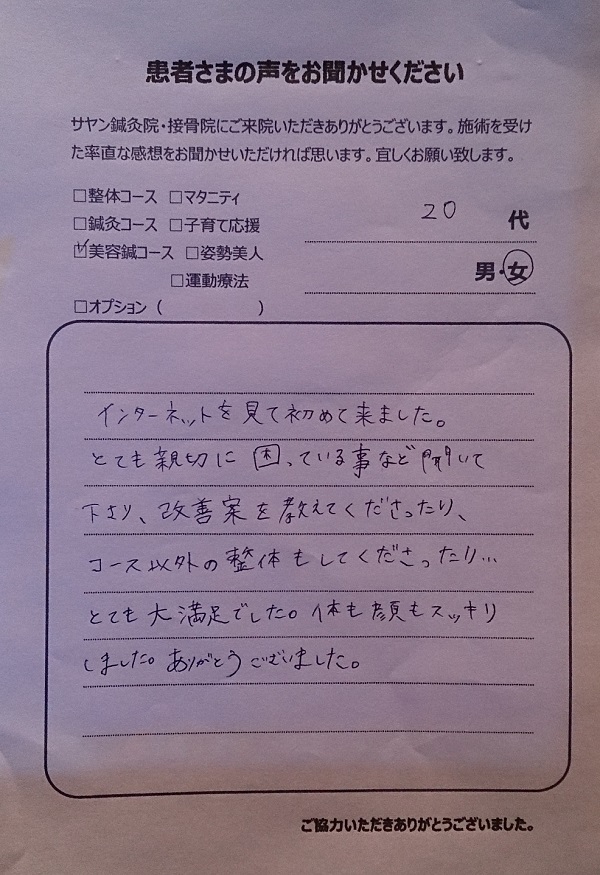 患者さまの声をお聞かせください
サヤン鍼灸院・接骨院にご来院いただきありがとうございます。施術を受け
た率直な感想をお聞かせいただければ思います。宜しくお願い致します。
□整体コース □マタニティ
□鍼灸コース □子育て応援
☑美容鍼コース □姿勢美人
□運動療法
□オプション（　　　　　　）
20 代
男・女
インターネットを見て初めて来ました。
とても親切に困っている事など聞いて
下さり、改善案を教えてくださったり、
コース以外の整体もしてくださったり…
とても大満足でした。体も顔もスッキリ
しました。ありがとうございました。
ご協力いただきありがとうございました。